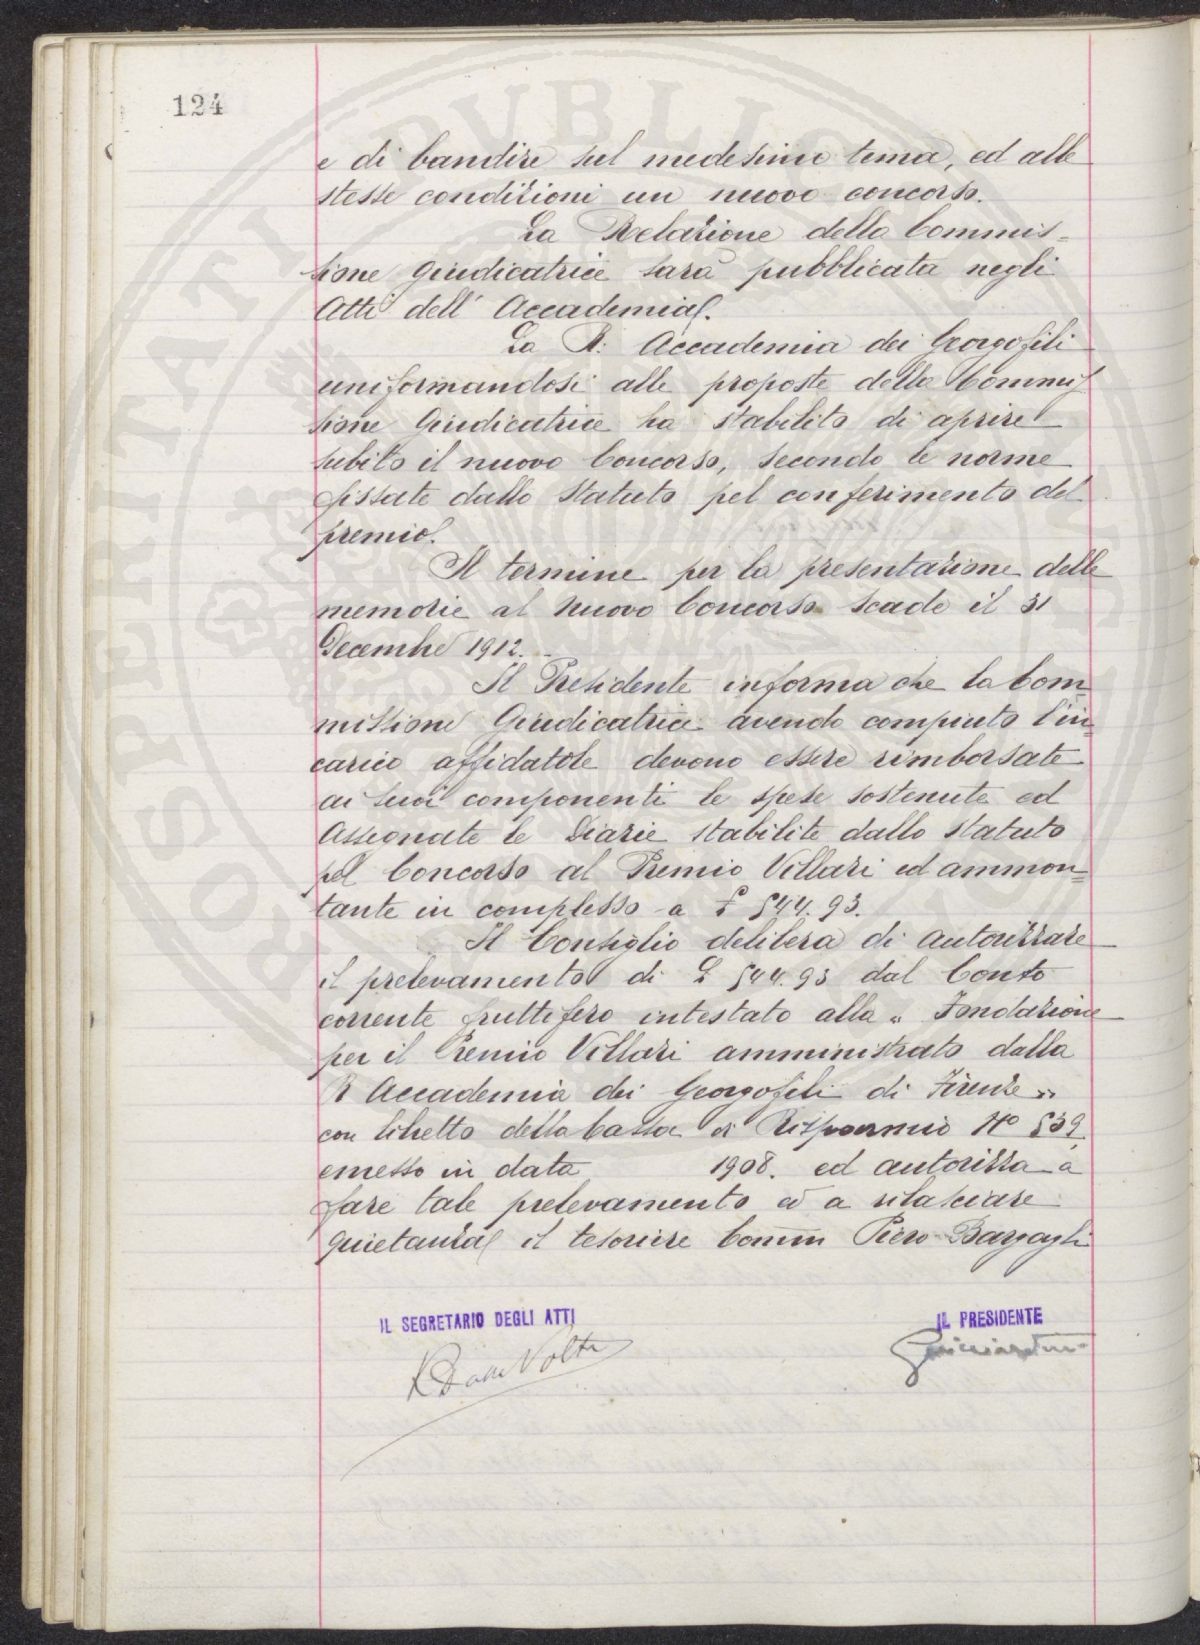 124
e di bandire sul medesimo tema, ed alle
stesse condizioni un nuovo concorso.
La Relazione della Commis=
sione Giudicatrice sarà pubblicata negli
Atti dell' Accademia.
La R: Accademia dei Georgofili
uniformandosi alle proposte della Commis
sione Giudicatrice ha stabilito di aprire
subito il nuovo Concorso, secondo le norme
fissate dallo Statuto pel conferimento del
premio.
Il termine per la presentazione delle
memorie al nuovo Concorso scade il 31
Decembre 1912.
Il Presidente informa che la Com=
missione Giudicatrice avendo compiuto l'in=
carico affidatole devono essere rimborsate
ai suoi componenti le spese sostenute ed
assegnate le Diarie stabilite dallo Statuto
pel Concorso al Premio Villari ed ammon=
tante in complesso a £ 544.93.
Il Consiglio delibera di autorizzare
il prelevamento di £ 544.93 dal Conto
corrente fruttifero intestato alla " Fondazione
per il Premio Villari amministrato dalla
R Accademia dei Georgofili di Firenze "
con libretto della Cassa di Risparmio No 539
emesso in data 1908. ed autorizza a
fare tale prelevamento e a rilasciare
quietanza il tesoriere Comm Piero Bargagli
IL SEGRETARIO DEGLI ATTI
IL PRESIDENTE
Guicciardini
PROSPERITATI PUBLICAE